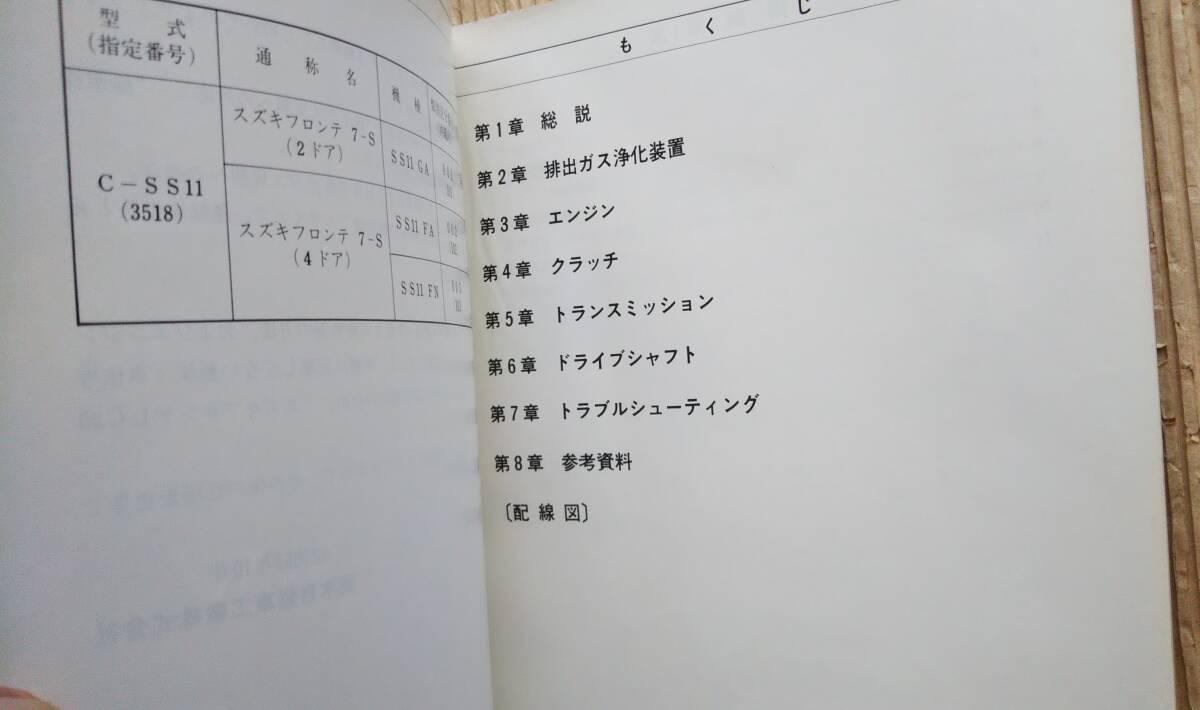 型 式
(指定番号)
通 称 名
機 種
C-SS11
(3518)
スズキフロンテ 7-S
(2ドア)
SS11 GA
スズキフロンテ 7-S
(4ドア)
SS11 FA
SS11 FN
もくじ
第1章 総 説
第2章 排出ガス浄化装置
第3章 エンジン
第4章 クラッチ
第5章 トランスミッション
第6章 ドライブシャフト
第7章 トラブルシューティング
第8章 参考資料
〔配 線 図〕